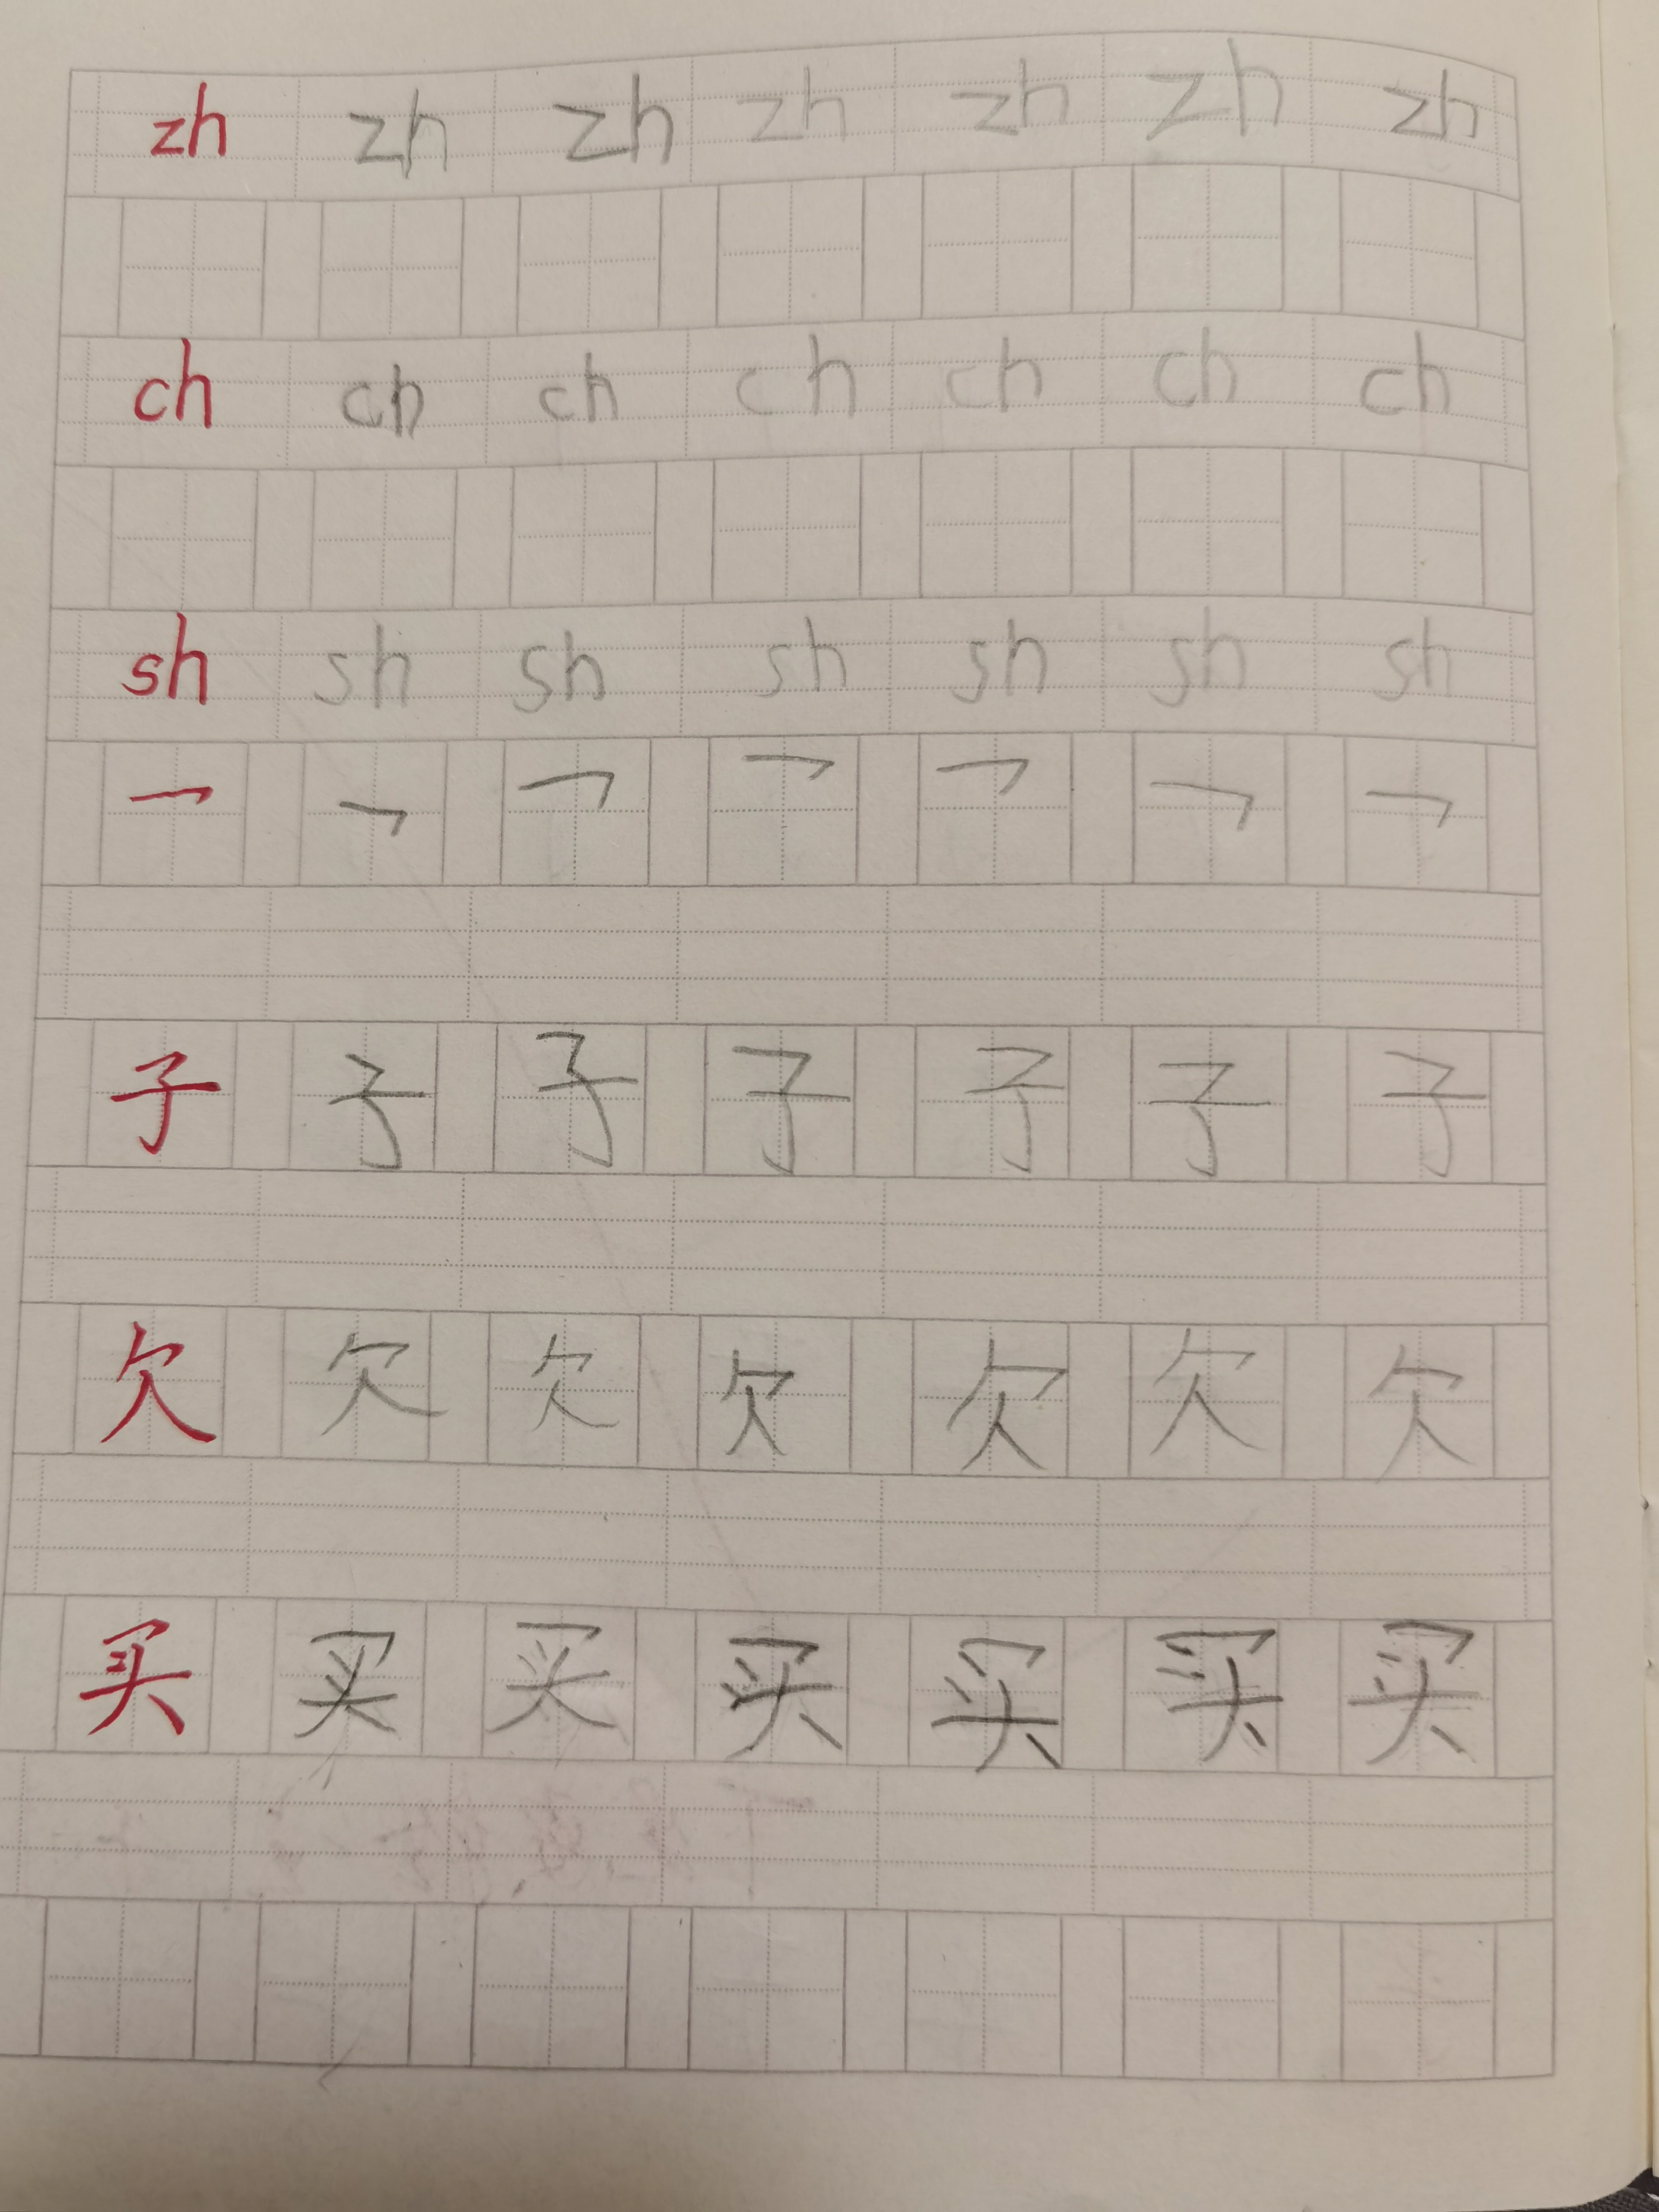 zh zh zh zh zh zh zh
ch ch ch ch ch ch ch
sh sh sh sh sh sh sh
㇇ ㇇ ㇇ ㇇ ㇇ ㇇ ㇇
子 子 子 子 子 子 子
欠 欠 欠 欠 欠 欠 欠
买 买 买 买 买 买 买